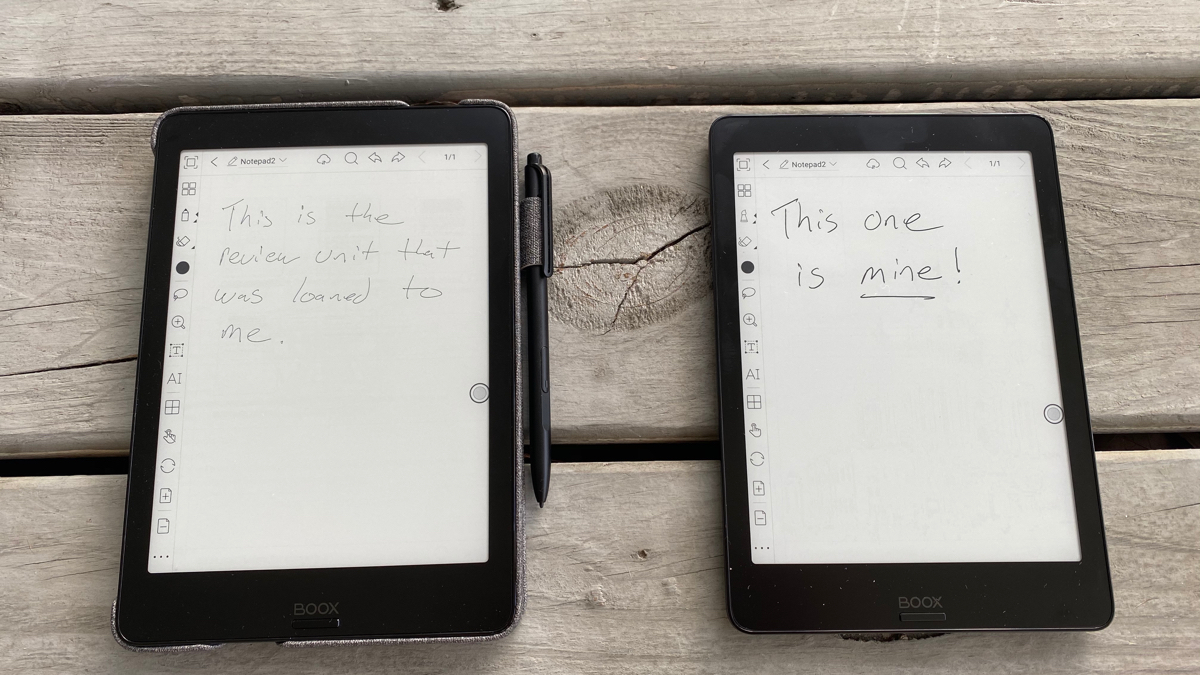 Notepad2
1/1
This is the
review unit that
was loaned to
me.
T
AI
BOOX
Notepad2
1/1
This one
is mine!
T
AI
BOOX